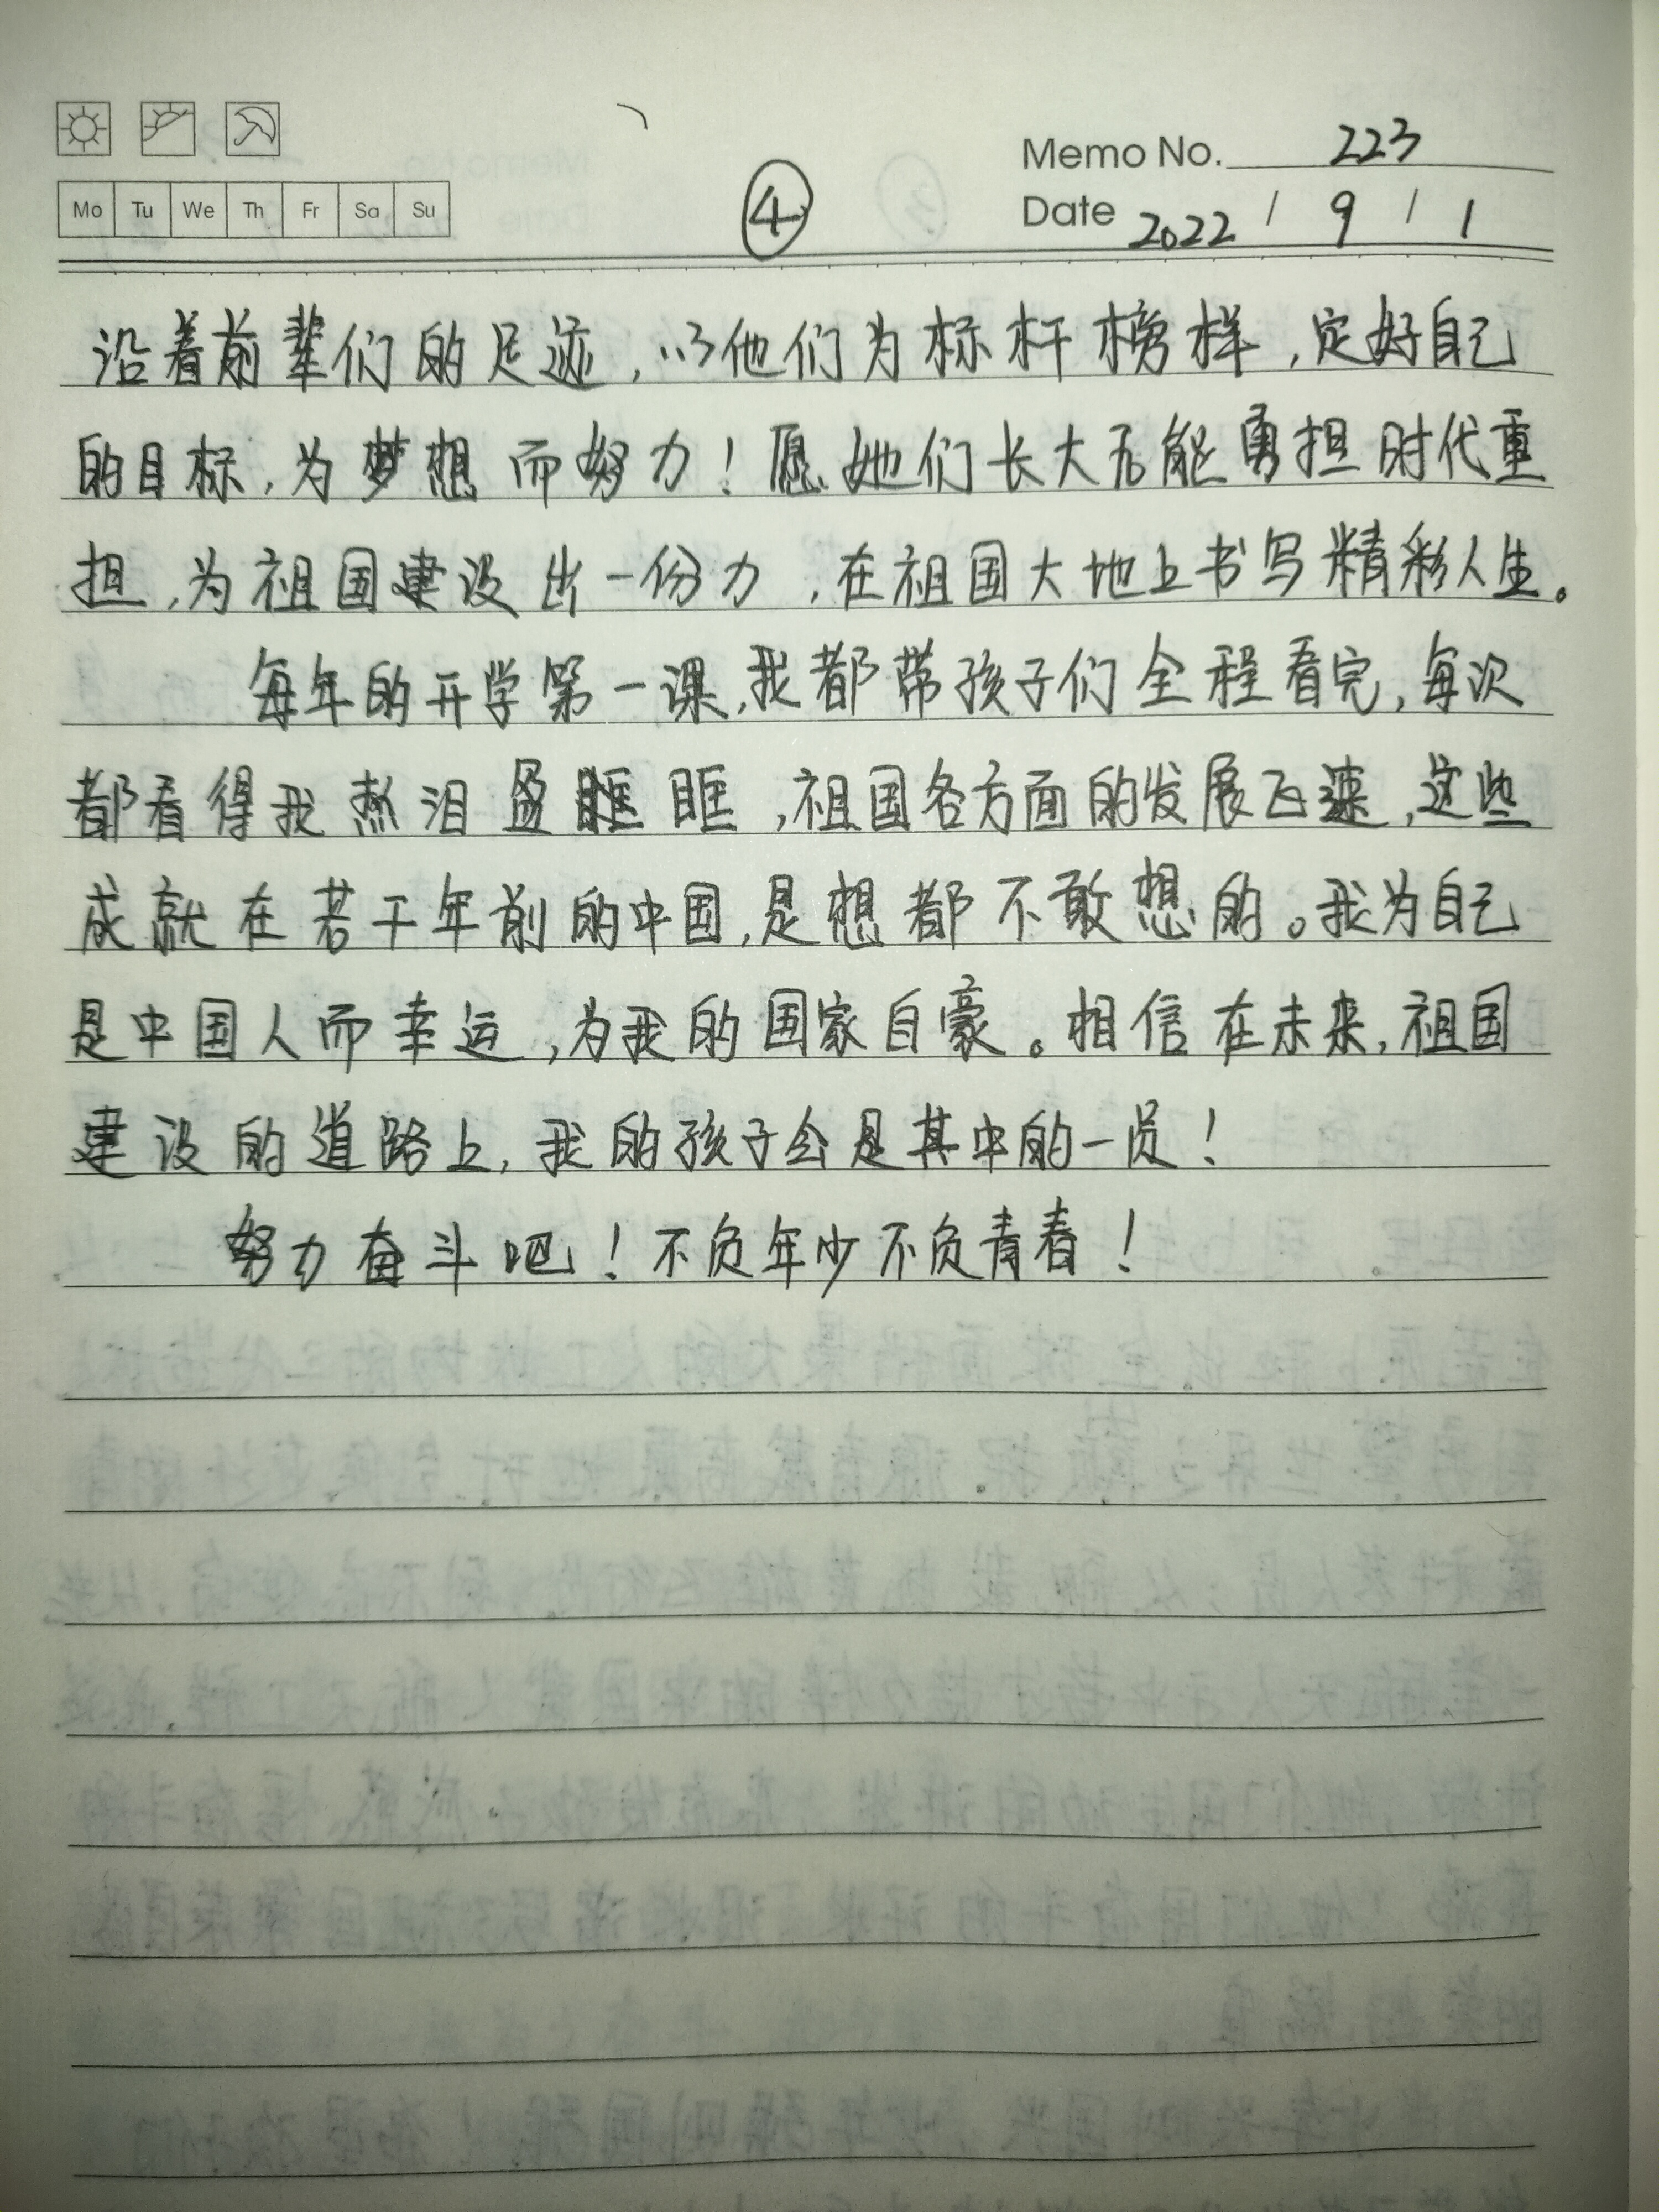 Memo No. 223
④
Mo Tu We Th Fr Sa Su
Date 2022 / 9 / 1
沿着前辈们的足迹，以他们为标杆榜样，定好自己
的目标，为梦想而努力！愿她们长大后能勇担时代重
担，为祖国建设出一份力，在祖国大地上书写精彩人生。
每年的开学第一课，我都带孩子们全程看完，每次
都看得我热泪盈眶眶，祖国各方面的发展飞速，这些
成就在若干年前的中国，是想都不敢想的。我为自己
是中国人而幸运，为我的国家自豪。相信在未来，祖国
建设的道路上，我的孩子会是其中的一员！
努力奋斗吧！不负年少不负青春！